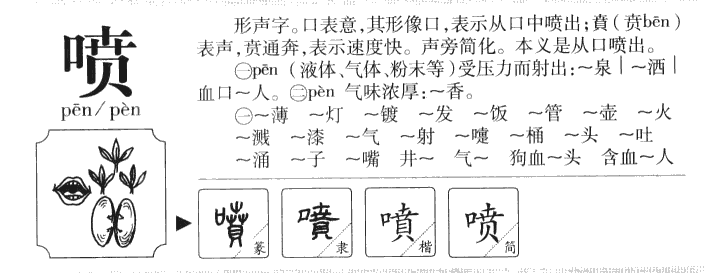 喷
pēn/pèn
形声字。口表意,其形像口,表示从口中喷出;賁(贲bēn)
表声,贲通奔,表示速度快。声旁简化。本义是从口喷出。
㊀pēn（液体、气体、粉末等)受压力而射出:～泉｜～洒｜
血口～人。㊁pèn 气味浓厚:～香。
㊀～薄 ～灯 ～镀 ～发 ～饭 ～管 ～壶 ～火
～溅 ～漆 ～气 ～射 ～嚏 ～桶 ～头 ～吐
～涌 ～子 ～嘴 井～ 气～ 狗血～头 含血～人
噴 篆 噴 隶 噴 楷 喷 简